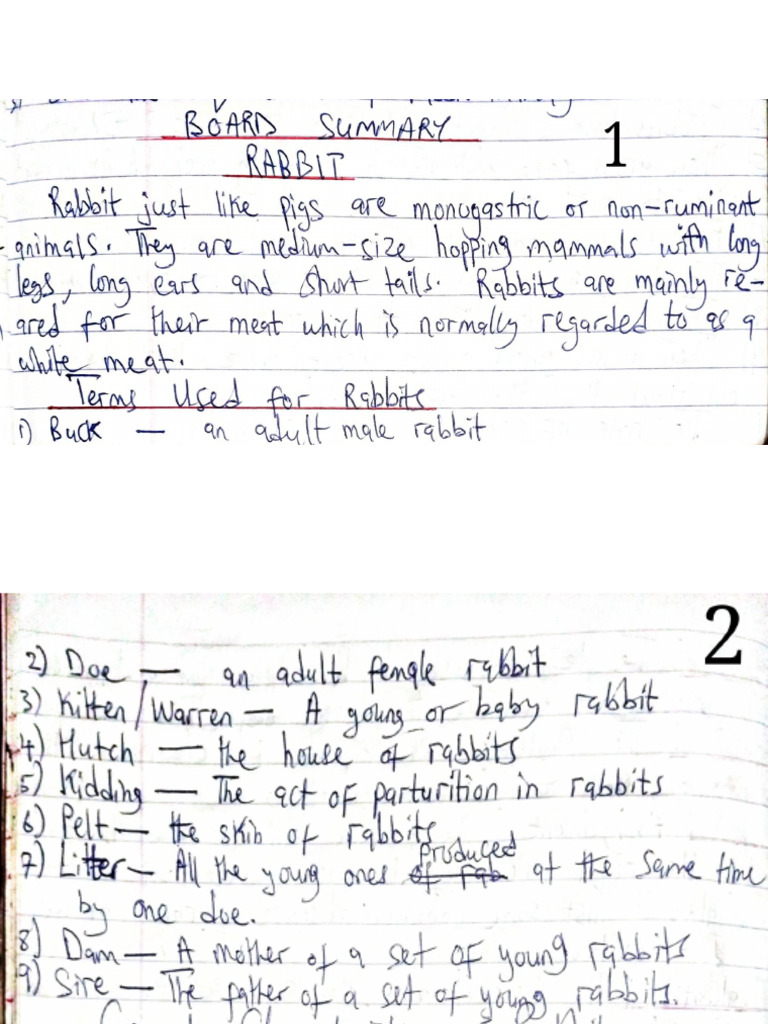 BOARD SUMMARY
1
RABBIT
Rabbit just like pigs are monogastric or non-ruminant
animals. They are medium-size hopping mammals with long
legs, long ears and short tails. Rabbits are mainly re-
ared for their meat which is normally regarded to as a
white meat.
Terms Used for Rabbits
1) Buck — an adult male rabbit
2
2) Doe — an adult female rabbit
3) Kitten/Warren — A young or baby rabbit
4) Hutch — the house of rabbits
5) Kidding — The act of parturition in rabbits
6) Pelt — the skin of rabbits
7) Litter — All the young ones produced at the same time
by one doe.
8) Dam — A mother of a set of young rabbits
9) Sire — The father of a set of young rabbits.